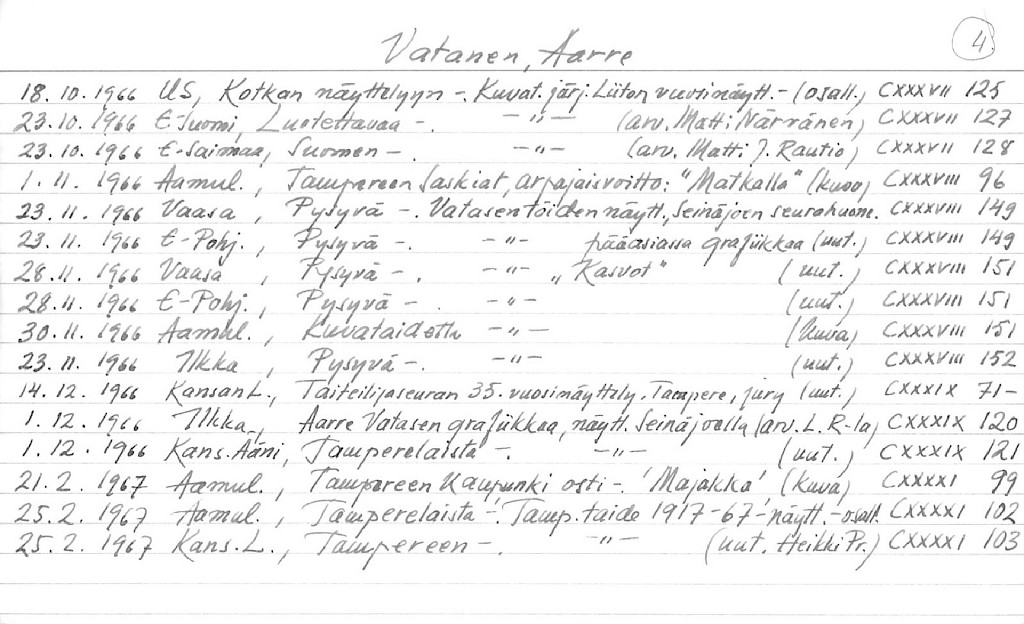 Vatanen, Aarre 4.
18.10.1966 US, Kotkan näyttelyyn -. Kuvat. järj. Liiton vuosinäytt. - (osall.) CXXXVII 125
23.10.1966 E-Suomi, Luotettavaa -. -"- (arv. Matti Närränen) CXXXVII 127
23.10.1966 E-Saimaa, Suomen -. -"- (arv. Matti J. Rautio) CXXXVII 128
1.11.1966 Aamul., Tampereen Saskiat, arpajaisvoitto: "Matkalla" (kuva) CXXXVIII 96
23.11.1966 Vaasa, Pysyvä -. Vatasen töiden näytt., Seinäjoen seurahuone. CXXXVIII 149
23.11.1966 E-Pohj., Pysyvä -. -"- pääasiassa grafiikkaa (uut.) CXXXVIII 149
28.11.1966 Vaasa, Pysyvä -. -"- "Kasvot" (uut.) CXXXVIII 151
28.11.1966 E-Pohj., Pysyvä -. -"- (uut.) CXXXVIII 151
30.11.1966 Aamul., Kuvataidetta -"- (kuva) CXXXVIII 151
23.11.1966 Ilkka, Pysyvä -. -"- (uut.) CXXXVIII 152
14.12.1966 Kansan L., Taiteilijaseuran 35. vuosinäyttely. Tampere, jury (uut.) CXXXIX 71-
1.12.1966 Ilkka, Aarre Vatasen grafiikkaa, näytt. Seinäjoella (arv. L. R-la) CXXXIX 120
1.12.1966 Kans. Ääni, Tamperelaista -. -"- (uut.) CXXXIX 121
21.2.1967 Aamul., Tampereen Kaupunki osti -. 'Majakka' (kuva) CXXXXI 99
25.2.1967 Aamul., Tamperelaista -. Tamp. taide 1917-67 -näytt. - osall. CXXXXI 102
25.2.1967 Kans. L., Tampereen -. -"- (uut. Heikki Pr.) CXXXXI 103